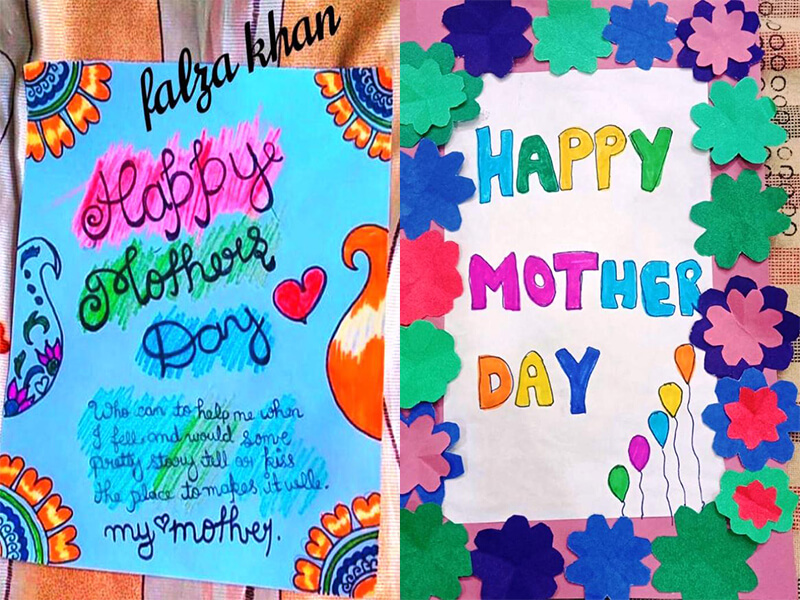 falza khan
Happy
Mothers
Day
Who can to help me when
I fell and would some
pretty story till or kiss
the place to makes it wille.
my mother.
HAPPY
MOTHER
DAY